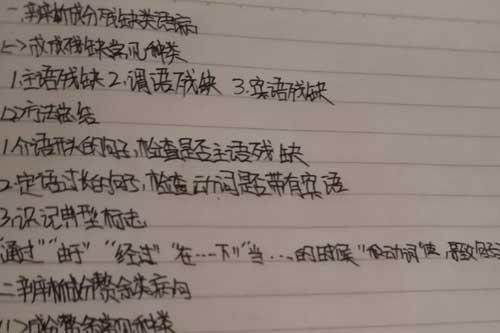 一、辨析成分残缺类语病
(一)成分残缺常见种类
1.主语残缺 2.谓语残缺 3.宾语残缺
(二)方法总结
1.介语开头的句子,检查是否主语残缺
2.定语过长的句子,检查动词是否带有宾语
3.识记典型标志
"通过""由于""经过""在……下""当……的时候"和动词"使、导致
二、辨析成分赘余类病句
(一)成分赘余常见种类